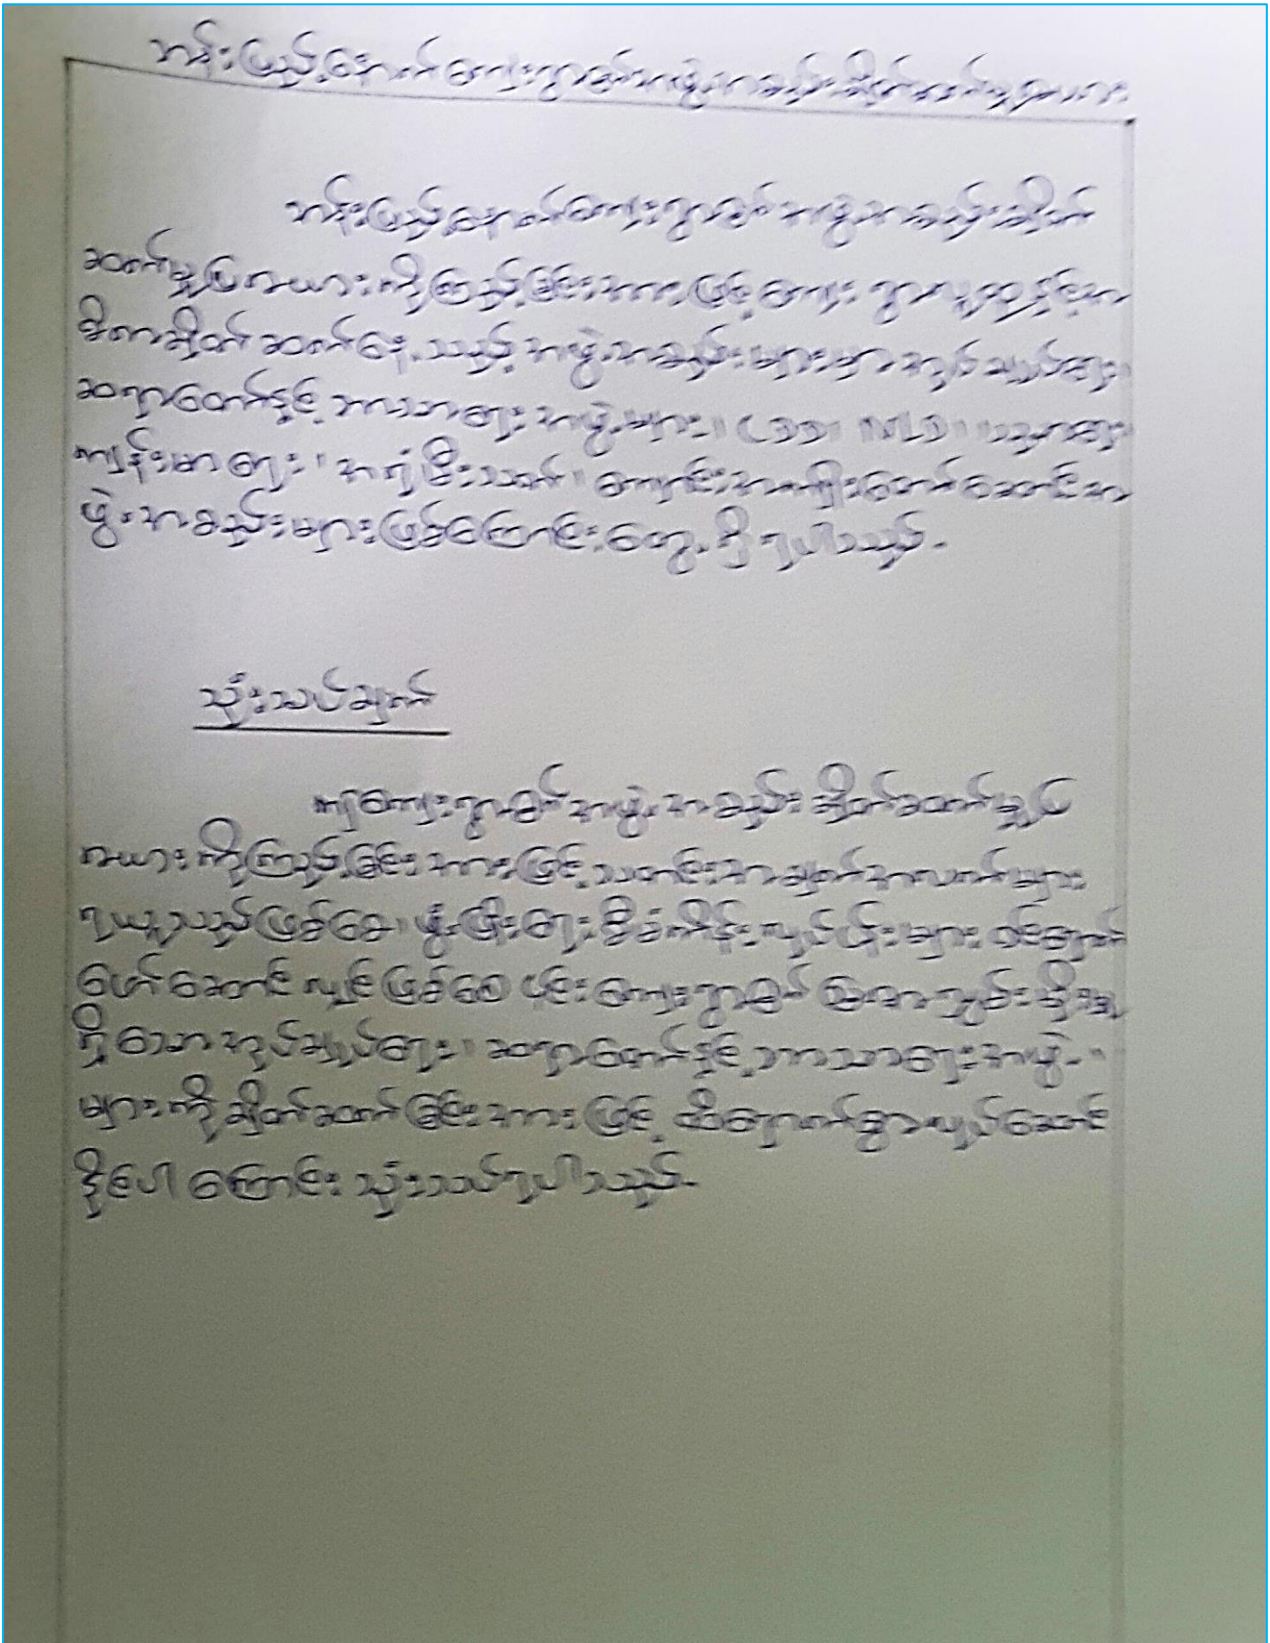 ဘန်းပြည့်နောက်ကျေးရွာ၏အဖွဲ့အစည်းချိတ်ဆက်မှုပြဇယား
ဘန်းပြည့်နောက်ကျေးရွာ၏ အဖွဲ့အစည်းချိတ်
ဆက်မှုပြဇယားကိုကြည့်ခြင်းအားဖြင့် ကျေးရွာလူထုနှင့်အ
ဓိကချိတ်ဆက်နေ့သည့် အဖွဲ့အစည်းများမှာအုပ်ချုပ်ရေး၊
ဆရာတော်နှင့် ဘာသာရေးအဖွဲ့များ၊ CDD၊ NLD၊ ပညာရေး
ကျန်းမာရေး၊ အရံမီးသတ်၊ ကျောင်းအကျိုးတော်ဆောင်အ
ဖွဲ့အစည်းများဖြစ်ကြောင်းတွေ့ရှိရပါသည်။
သုံးသပ်ချက်
ဤကျေးရွာ၏ အဖွဲ့အစည်းချိတ်ဆက်မှုပြ
ဇယားကိုကြည့်ခြင်းအားဖြင့် သတင်းအချက်အလက်များ
ရယူသည်ဖြစ်စေ၊ ဖွံ့ဖြိုးရေးစီမံကိန်းလုပ်ငန်းများ
ဖော်ဆောင်လျှင်ဖြစ်စေ ၎င်းကျေးရွာ၏ ဩဇာလွှမ်းမိုးမှု
ရှိသောအုပ်ချုပ်ရေး၊ ဆရာတော်နှင့်ဘာသာရေးအဖွဲ့
များကိုချိတ်ဆက်ခြင်းအားဖြင့် ထိရောက်စွာလုပ်ဆောင်
နိုင်ပါကြောင်း သုံးသပ်ရပါသည်။